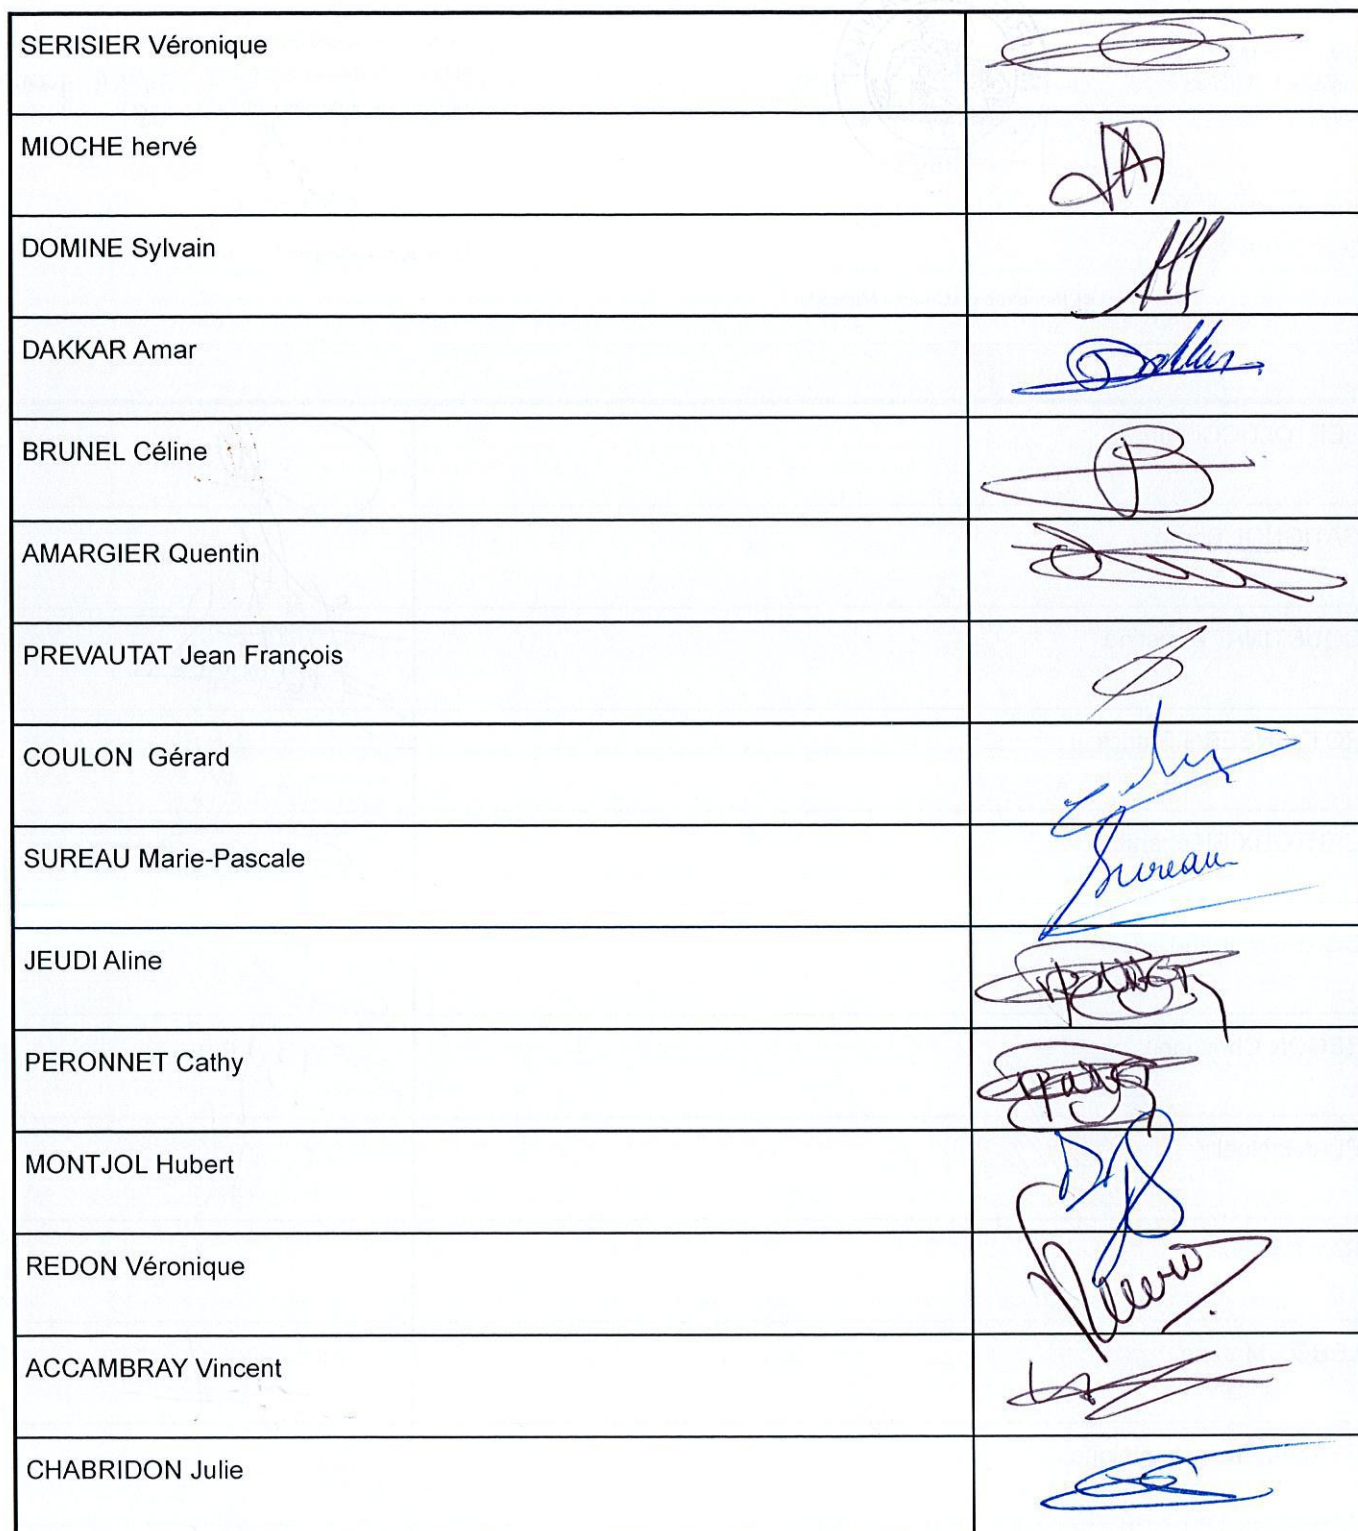 SERISIER Véronique
MIOCHE hervé
DOMINE Sylvain
DAKKAR Amar
BRUNEL Céline
AMARGIER Quentin
PREVAUTAT Jean François
COULON Gérard
SUREAU Marie-Pascale
Sureau
JEUDI Aline
PERONNET Cathy
MONTJOL Hubert
REDON Véronique
ACCAMBRAY Vincent
CHABRIDON Julie